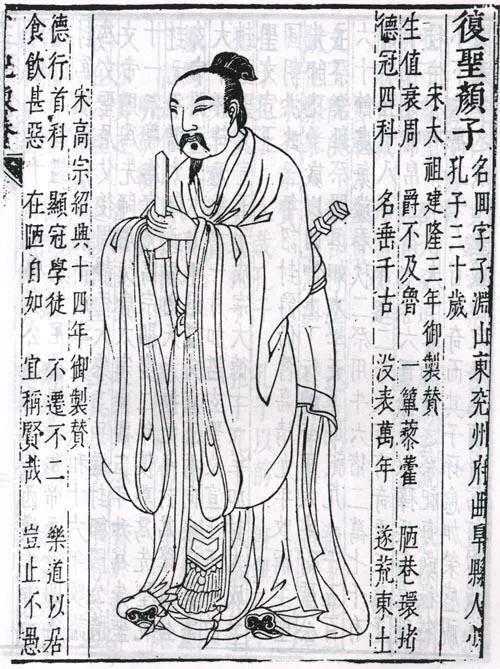 復聖顏子
名囬字子淵山東兖州府曲阜縣人少
孔子三十歲
宋太祖建隆三年御製賛
生值衰周 爵不及魯 一簞藜藿 陋巷環堵
德冠四科 名垂千古 没表萬年 遂荒東土
宋高宗紹興十四年御製賛
德行首科 顯冠學徒 不遷不二 樂道以居
食飲甚惡 在陋自如 宜稱賢哉 豈止不愚